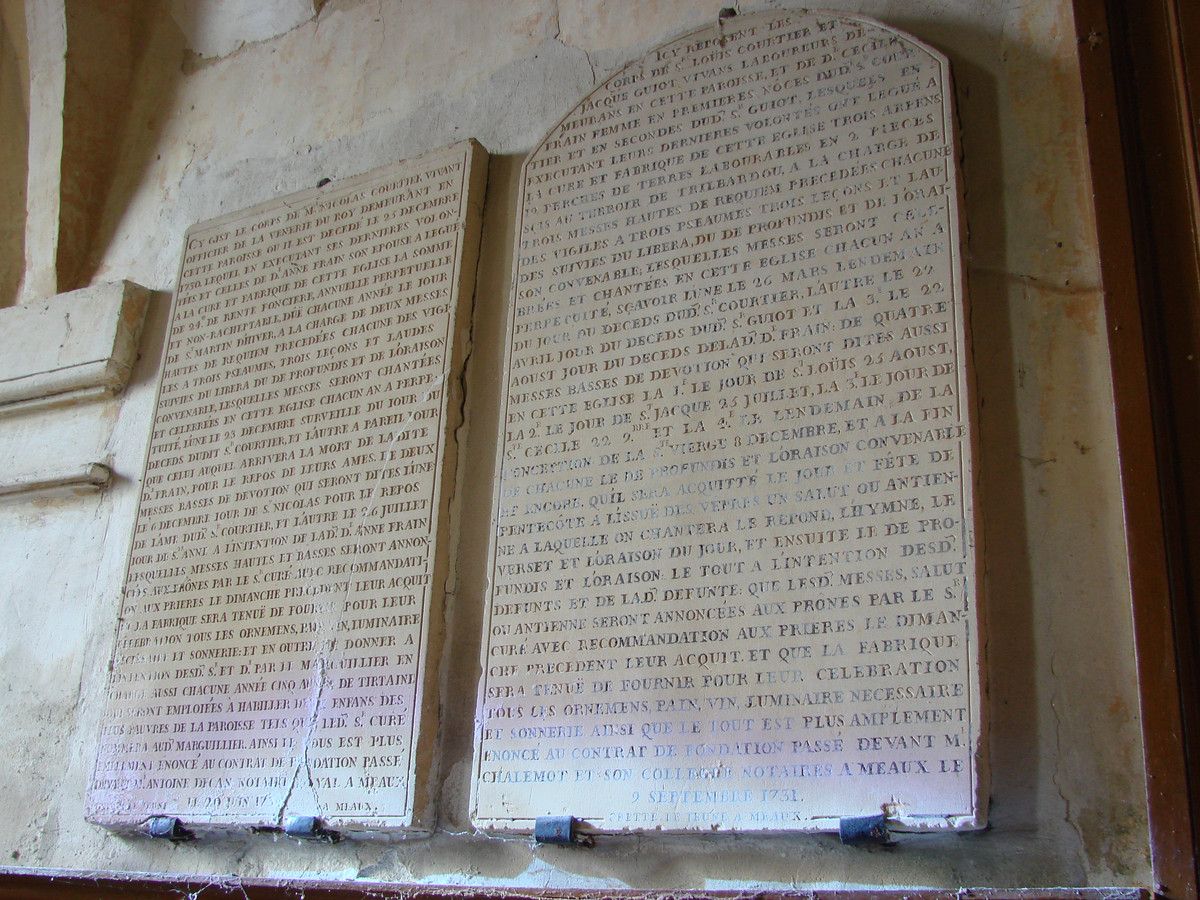 CY GIST LE CORPS DE Mr. NICOLAS COURTIER VIVANT
OFFICIER DE LA VENERIE DU ROY DEMEURANT EN
CETTE PAROISSE OU IL EST DECEDÉ LE 25 DECEMBRE
1730 LEQUEL EN EXECUTANT SES DERNIERES VOLON-
TÉES ET CELLES DE D. ANNE FRAIN SON EPOUSE A LEGUÉ
A LA CURE ET FABRIQUE DE CETTE EGLISE LA SOMME
DE 24 DE RENTE FONCIERE, ANNUELLE PERPETUELLE
ET NON-RACHEPTABLE, DÜE CHACUNE ANNÉE LE JOUR
DE St. MARTIN D'HIVER, A LA CHARGE DE DEUX MESSES
HAUTES DE REQUIEM PRECEDÉES CHACUNE DES VIGI
LES A TROIS PSEAUMES, TROIS LEÇONS ET LAUDES
SUIVIES DU LIBERA DU DE PROFUNDIS ET DE L'ORAISON
CONVENABLE, LESQUELLES MESSES SERONT CHANTÉES
ET CELEBRÉES EN CETTE EGLISE CHACUN AN A PERPE-
TUITÉ, L'UNE LE 23 DECEMBRE SURVEILLE DU JOUR DU
DECEDS DUDIT Sr. COURTIER, ET L'AUTRE A PAREIL JOUR
QUE CELUI AUQUEL ARRIVERA LA MORT DE LADITE
D. FRAIN, POUR LE REPOS DE LEURS AMES. DE DEUX
MESSES BASSES DE DEVOTION QUI SERONT DITES L'UNE
LE 6 DECEMBRE JOUR DE St. NICOLAS POUR LE REPOS
DE L'AME DUD. Sr. COURTIER, ET L'AUTRE LE 26 JUILLET
JOUR DE Ste. ANNE A L'INTENTION DE LAD. D. ANNE FRAIN
LESQUELLES MESSES HAUTES ET BASSES SERONT ANNON-
CÉES AUX PRÔNES PAR LE Sr. CURÉ AVEC RECOMMANDATI-
ON AUX PRIERES LE DIMANCHE PRÉCÉDENT LEUR ACQUIT
LA FABRIQUE SERA TENUË DE FOURNIR POUR LEUR
CELEBRATION TOUS LES ORNEMENS, PAIN, VIN, LUMINAIRE
NECESSAIRE ET SONNERIE: ET EN OUTRE DE DONNER A
L'INTENTION DESD. Sr. ET D. PAR LE MARGUILLIER EN
CHARGE AUSSI CHACUNE ANNÉE CINQ AUNES DE TIRTAINE
QUI SERONT EMPLOIÉES A HABILLER DEUX ENFANS DES
PLUS PAUVRES DE LA PAROISSE TELS QUE LED. Sr. CURÉ
AUD. MARGUILLIER. AINSI LE TOUS EST PLUS
ENONCÉ AU CONTRAT DE FONDATION PASSÉ
DEVANT M. ANTOINE DECAN NOTAIRE A MEAUX
LE 20 JUIN
A MEAUX.
ICY REPOSENT LES
CORPS DE Sr. LOÜIS COURTIER ET
JACQUE GUIOT VIVANS LABOUREURS DE-
MEURANS EN CETTE PAROISSE, ET DE D. CECILE
FRAIN FEMME EN PREMIERES NÔCES DUD. Sr. COUR-
TIER ET EN SECONDES DUD. Sr. GUIOT, LESQUELS EN
EXECUTANT LEURS DERNIERES VOLONTÉS ONT LEGUÉ A
LA CURE ET FABRIQUE DE CETTE EGLISE TROIS ARPENS
PERCHES DE TERRES LABOURABLES EN 2 PIECES
SCIS AU TERROIR DE TRILBARDOU, A LA CHARGE DE
TROIS MESSES HAUTES DE REQUIEM PRECEDÉES CHACUNE
DES VIGILES A TROIS PSEAUMES TROIS LEÇONS ET LAU-
DES SUIVIES DU LIBERA, DU DE PROFUNDIS ET DE L'ORAI-
SON CONVENABLE; LESQUELLES MESSES SERONT CELE-
BRÉES ET CHANTÉES EN CETTE EGLISE CHACUN AN A
PERPETUITÉ, SÇAVOIR L'UNE LE 26 MARS LENDEMAIN
DU JOUR DU DECEDS DUD. Sr. COURTIER, L'AUTRE LE 22
AVRIL JOUR DU DECEDS DUD. Sr. GUIOT ET LA 3e. LE 22
AOUST JOUR DU DECEDS DE LAD. D. FRAIN: DE QUATRE
MESSES BASSES DE DEVOTION QUI SERONT DITES AUSSI
EN CETTE EGLISE LA 1e. LE JOUR DE St. LOÜIS 25 AOUST,
LA 2e. LE JOUR DE St. JACQUE 25 JUILLET, LA 3e. LE JOUR DE
Ste. CECILE 22 9bre ET LA 4e. LE LENDEMAIN DE LA
CONCEPTION DE LA Ste. VIERGE 8 DECEMBRE, ET A LA FIN
DE CHACUNE LE DE PROFUNDIS ET L'ORAISON CONVENABLE
ENCORE, QU'IL SERA ACQUITTÉ LE JOUR ET FÊTE DE
PENTECÔTE A L'ISSUË DES VÊPRES UN SALUT OU ANTIEN-
NE A LAQUELLE ON CHANTERA LE REPOND, L'HYMNE, LE
VERSET ET L'ORAISON DU JOUR, ET ENSUITE LE DE PRO-
FUNDIS ET L'ORAISON. LE TOUT A L'INTENTION DESD.
DEFUNTS ET DE LAD. DEFUNTE: QUE LESD. MESSES, SALUT
OU ANTIENNE SERONT ANNONCÉES AUX PRONES PAR LE Sr.
CURÉ AVEC RECOMMANDATION AUX PRIERES LE DIMAN-
CHE PRECEDENT LEUR ACQUIT. ET QUE LA FABRIQUE
SERA TENUË DE FOURNIR POUR LEUR CELEBRATION
TOUS LES ORNEMENS, PAIN, VIN, LUMINAIRE NECESSAIRE
ET SONNERIE AINSI QUE LE TOUT EST PLUS AMPLEMENT
ENONCÉ AU CONTRAT DE FONDATION PASSÉ DEVANT M.
CHALEMOT ET SON COLLEGUE NOTAIRES A MEAUX LE
9 SEPTEMBRE 1731.
LE JEUNE A MEAUX.